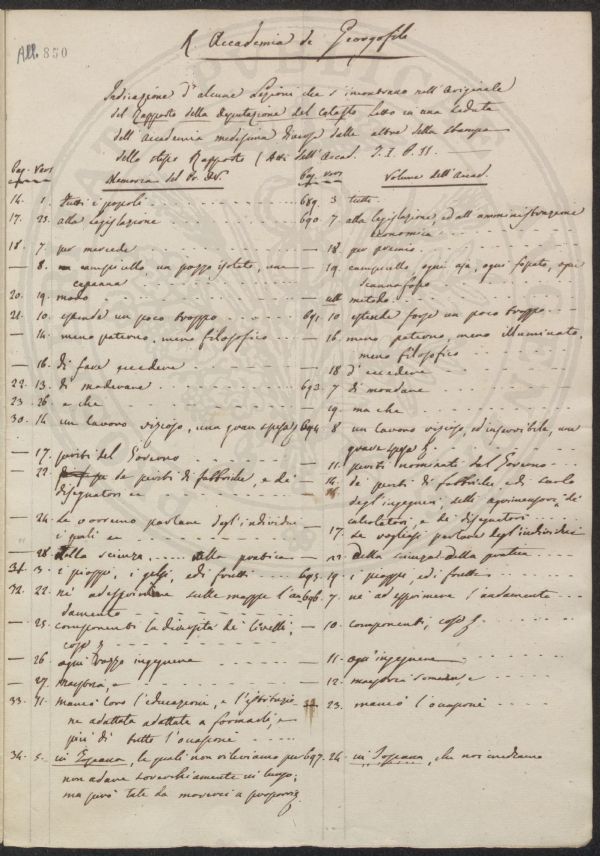 All. 850
R. Accademia de Georgofili
Indicazione di alcune Lezioni che s'incontrano nell'Originale
del Rapporto della Deputazione del Catasto letto in una seduta
dell'Accademia medesima diverse dalle altre della stampa
dello stesso Rapporto (Atti dell'Accad. T. I. P. II.
Pag. Vers. Memoria del pag. vers. Volume dell'Accad.
14. 1. tutti i popoli 689. 3 tutte
17. 23. alla legislazione 690. 7 alla legislazione, ed all'amministrazione
economica
18. 7 per mercede 18 per premio
— 8. campicello, un pozzo isolato, una — 19. campicello, ogni aja, ogni fossato, ogni
capanna
20. 19. modo metodo
21. 10 estende un poco troppo 691. 10 estende forse un poco troppo
— 14. meno paterno, meno filosofico — 16. meno paterno, meno illuminato,
meno filosofico
— 16. di fare eccedere — 18 d'eccedere
22. 13. di 693. 7 di mondare
23. 26 e che — 19 ma che
30. 14 un lavoro vizioso, una gran spesa 694. 8 un lavoro vizioso, ed inservibile, una
grave spesa
— 17. periti del Governo — 11. periti nominati dal Governo
— 22. se periti di fabbriche, e de' 14. de' periti di fabbriche, ed
disegnatori degl'ingegneri, degli agrimensori, de'
calcolatori, e de' disegnatori
— 24. Se vorremo parlare degl'individui 17. Se vogliasi parlare degl'individui
i quali
— 28. dalla scienza, alla pratica della scienza della pratica
31. 3. i pioppi, i gelsi, ed i frutti 695. 19. i pioppi, ed i frutti
32. 22. nè ad esprimere sulle mappe l'an 696. 7. nè ad esprimere l'andamento
damento
— 25. componenti la diversità de' livelli, — 10. componenti, cose
cose
— 26 ogni bravo ingegnere — 11. ogni ingegnere
— 27. maestria, e — 12. maestria somma, e
33. 11. mancò loro l'educazione, e l'istruzio — 23. mancò l'occasione
ne adattata a formarli, e
più di tutto l'occasione
34. 5. in Toscana, le quali non rileviamo per 697. 24. in Toscana, che noi crediamo
non adare soverchiamente in lungo;
ma però tale da moverci a proporvi